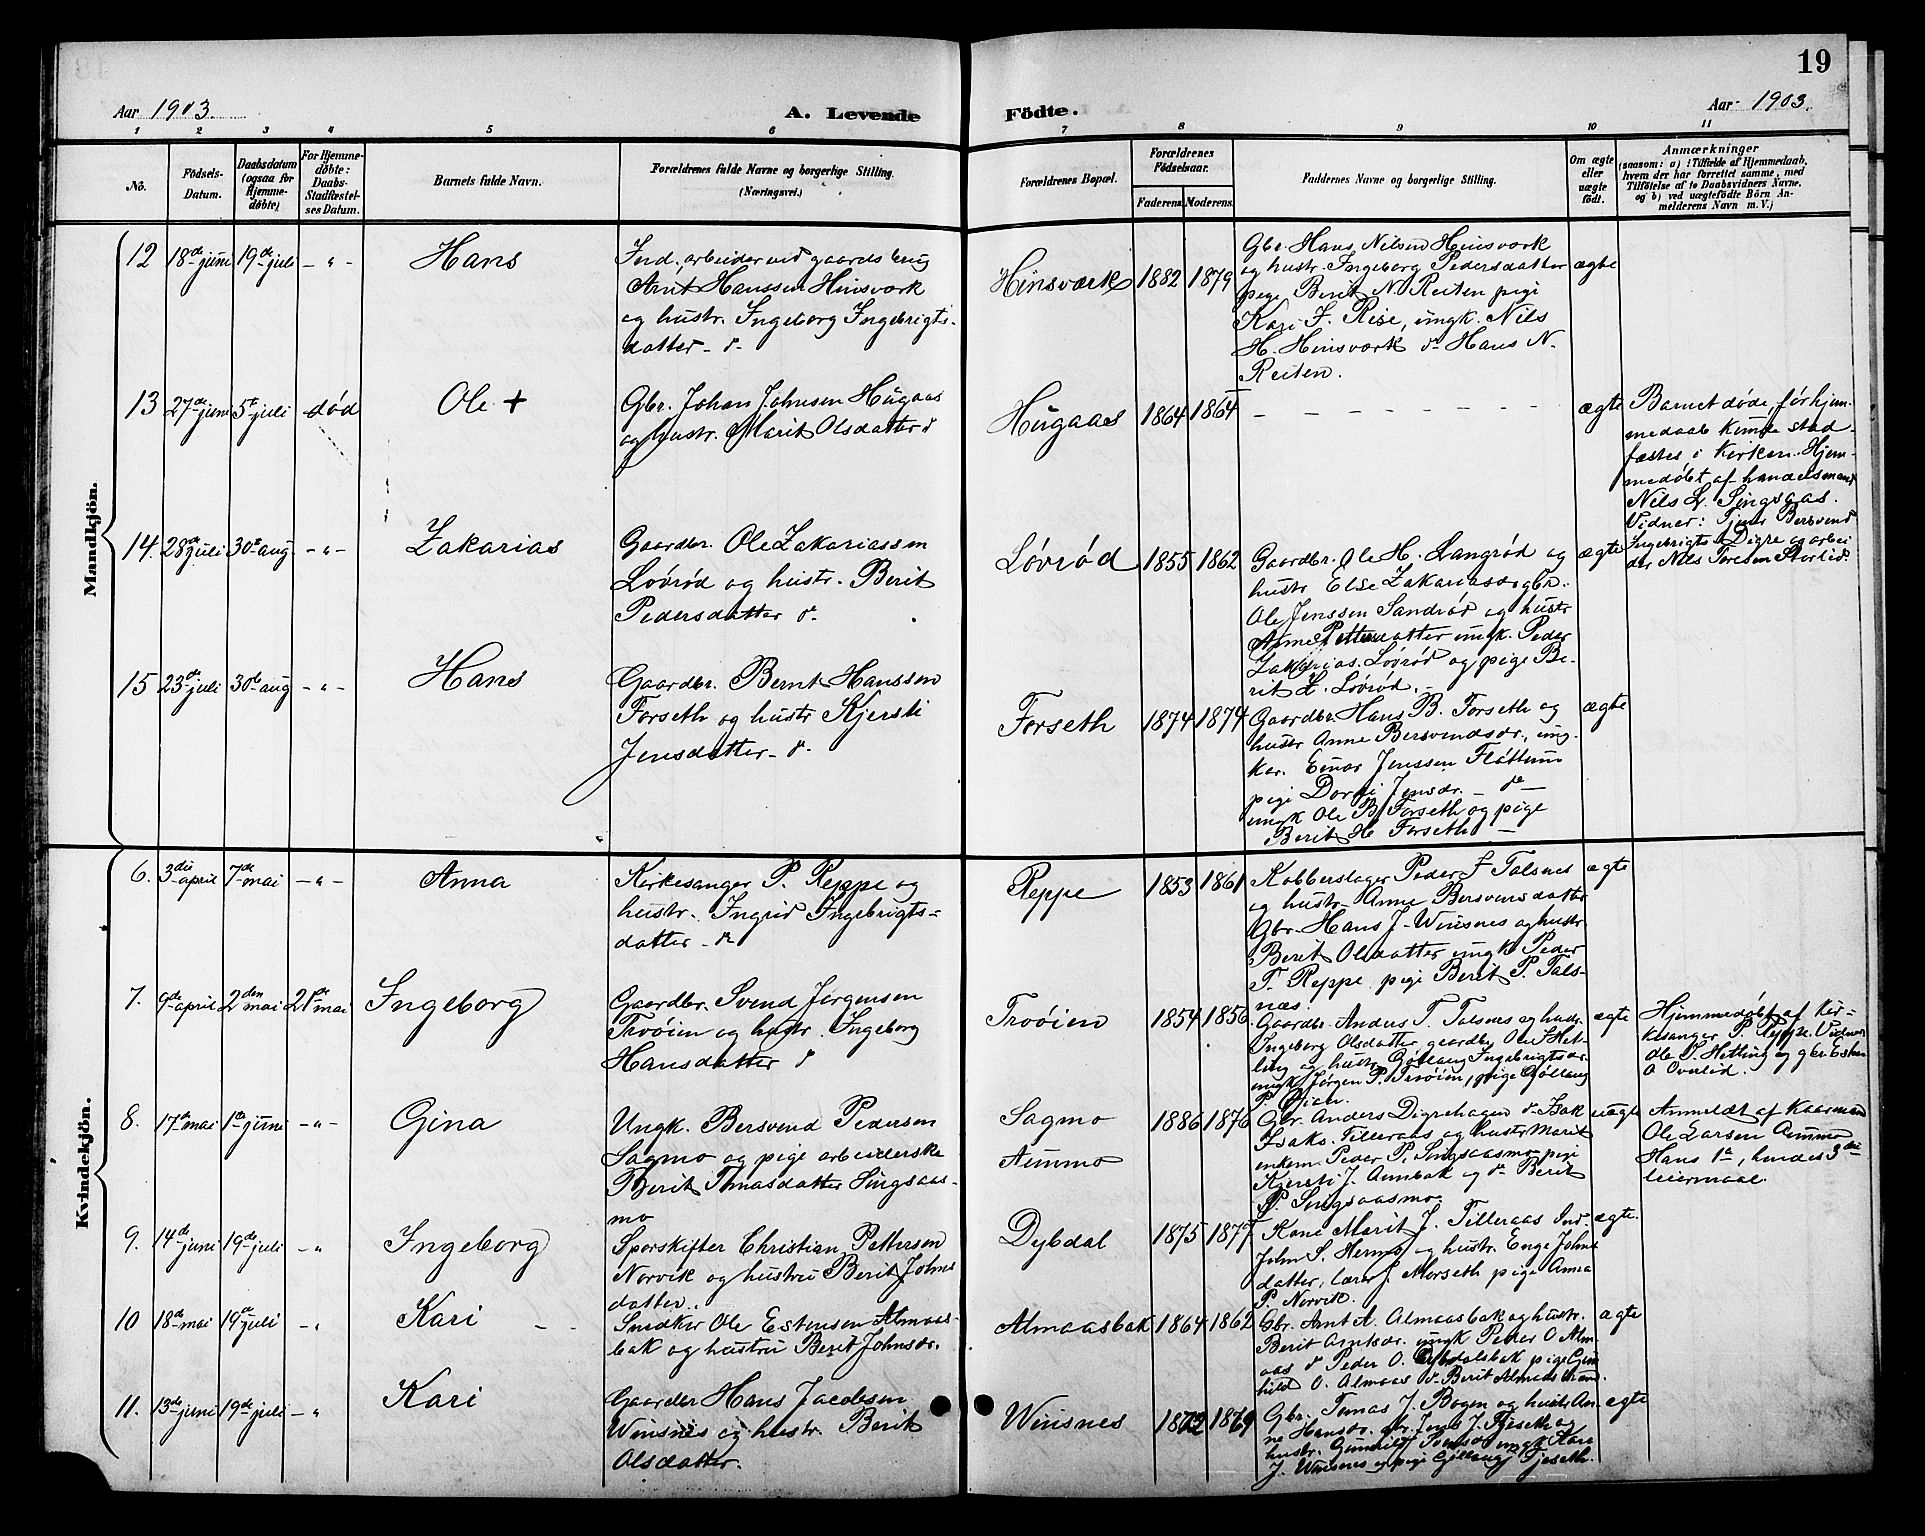 19
Aar 1903.
A. Levende
Födte.
Aar 1903.
1 2 3 4 5 6 7 8 9 10 11
No.
Födsels-
Datum.
Daabsdatum
(ogsaa for
Hjemme-
döbte)
For Hjemme-
döbte:
Daabs-
Stadfæstel-
ses Datum.
Barnets fulde Navn.
Forældrenes fulde Navne og borgerlige Stilling.
(Næringsvei.)
Forældrenes Bopæl.
Forældrenes
Födselsaar.
Faderens. Moderens.
Faddernes Navne og borgerlige Stilling.
Om ægte
eller
uægte
födt.
Anmærkninger
(saasom: a) i Tilfælde af Hjemmedaab,
hvem der har forrettet samme, med
Tilföielse af to Daabsvidners Navne.
og b) ved uægtefödte Börn An-
melderens Navn m. V.)
Mandkjön.
12 18de juni 19de juli - " - Hans
Ind. arbeider ved gaardsbrug
Arnt Hanssen Hinsværk
og hustr. Ingeborg Ingebrigts-
datter - d-
Hinsværk 1882 1879
Gbr. Hans Nilsen Hinsværk
og hustr. Ingeborg Pedersdatter
pige Berit N. Reiten pige
Kari J. Rise, ungk. Nils
H. Hinsværk d- Hans N.
Reiten.
ægte
13 27de juni 5te juli død Ole +
Gbr. Johan Johnsen Hugaas
og hustr. Marit Olsdatter d
Hugaas 1864 1864 - - - - - - - - ægte
Barnet døde, før hjem-
medaab kunde stad-
fæstes i kirken. Hjem-
medøbt af handelsmand
Nils L. Singsaas.
Vidner: Tjener Bersvend
Ingebrigts. Digre og arbei
der Nils Toresen Storlid.
14. 28de juli 30te aug - " - Zakarias
Gaardbr. Ole Zakariassen
Løvrød og hustr. Berit
Pedersdatter d-
Løvrød 1855 1862
Gaardbr. Ole H. Langrød og
hustr Else Zakariasd. gbr.
Ole Jenssen Sandrød og hustr
Anne Pettersdatter ungk. Peder
Zakarias. Løvrød og pige Be-
rit Z. Løvrød.-
ægte
15 23de juli 30te aug - " - Hans
Gaardbr. Bernt Hanssen
Forseth og hustr Kjersti
Jensdatter - d-
Forseth 1874 1874
Gaardbr. Hans B. Forseth og
hustr Anne Bersvendsdr., ung-
kar. Einar Jenssen Fløttum
pige Dorti Jensdr. - de -
ungk Ole B. Forseth og pige
Berit H Forseth -
ægte
Kvindekjön.
6. 3die april 7de mai - " - Anna
Kirkesanger P. Reppe og
hustr. Ingrid Ingebrigts-
datter - d-
Reppe 1853 1861
Kobberslager Peder F Talsnes
og hustr- Anne Bersvensdatter
Gbr. Hans J. Winsnes og hustr.
Berit Olsdatter ungk Peder
T. Reppe pige Berit P. Tals-
næs.
ægte
7. 9de april 2den mai 21de mai Ingeborg
Gaardbr. Svend Jørgensen
Trøøien og hustr. Ingeborg
Hansdatter d
Trøøien 1854 1856
Gaardbr. Anders T. Talsnes og hustr
Ingeborg Olsdatter, gaardbr Ole S Het-
ling og hustr Gøllaug Ingebrigtsdr.
ungk Jørgen P. Trøøien, pige Gjøllaug
P. Øian.
ægte
Hjemmedøbt af Kir-
kesanger P. Reppe. Vidner
Ole S. Hetling og gbr Esten
O Overlid.
8. 17de mai 1ste juni - " - Gina
Ungk. Bersvend Pedersen
Sagmo og pige arbeiderske
Berit Tomasdatter Singsaas-
mo
Sagmo
Aunmo
1886 1876
Gbr. Anders Digrehagen d- Isak
Isaks. Tilleraas og hustr Marit
enkem. Peder P. Singsaasmo pige
Kjersti J. Aunbak og d- Berit
P. Singsaasmo.
uægte
Anmeldt af Kaarmand
Ole Larsen Aunmo
Hans 1ste, hendes 3die
leiermaal.
9. 14de juni 19de juli - " Ingeborg
Sporskifter Christian Pettersen
Norvik og hustru Berit Johns
datter.
Dybdal 1875 1877
Kone Marit J. Tilleraas Ind.
John S. Hermo og hustr. Enge Johns
datter, lærer J. Morseth pige Anna
P. Norvik.
ægte.
10 18de mai 19de juli - " Kari - -
Snedker Ole Estensen Almaas-
bak og hustru Berit Johnsdr.
Almaasbak 1864 1862
Gbr. Arnt A. Almaasbak og hustr.
Berit Arntsdr. ungk Peder O Alm-
aas d Peder O. Dybdalsbak pige Gun
hild O. Almaas d- Berit Almaas
ægte
11. 13de juni 19de juli - " Kari
Gaardbr Hans Jacobsen
Winsnes og hustr. Berit
Olsdatter.
Winsnes 1872 1869
Gbr. Tomas J. Bogen og hustr An-
ne Hansdr. gbr. Jens J. Fjeseth og
hustr. Gunhild ungk Kare
J. Winsnes og pige Gjøllaug Fjeseth.
ægte